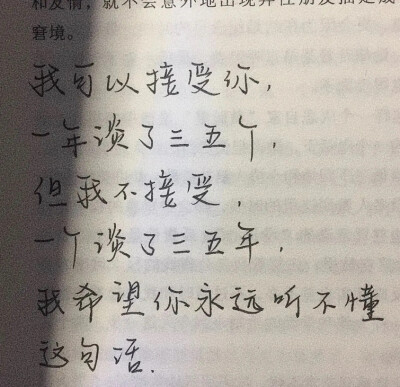 和友情，就不会意外地出现异性朋友插足成
窘境。
我可以接受你，
一年谈了三五个，
但我不接受，
一个谈了三五年，
我希望你永远听不懂
这句话.